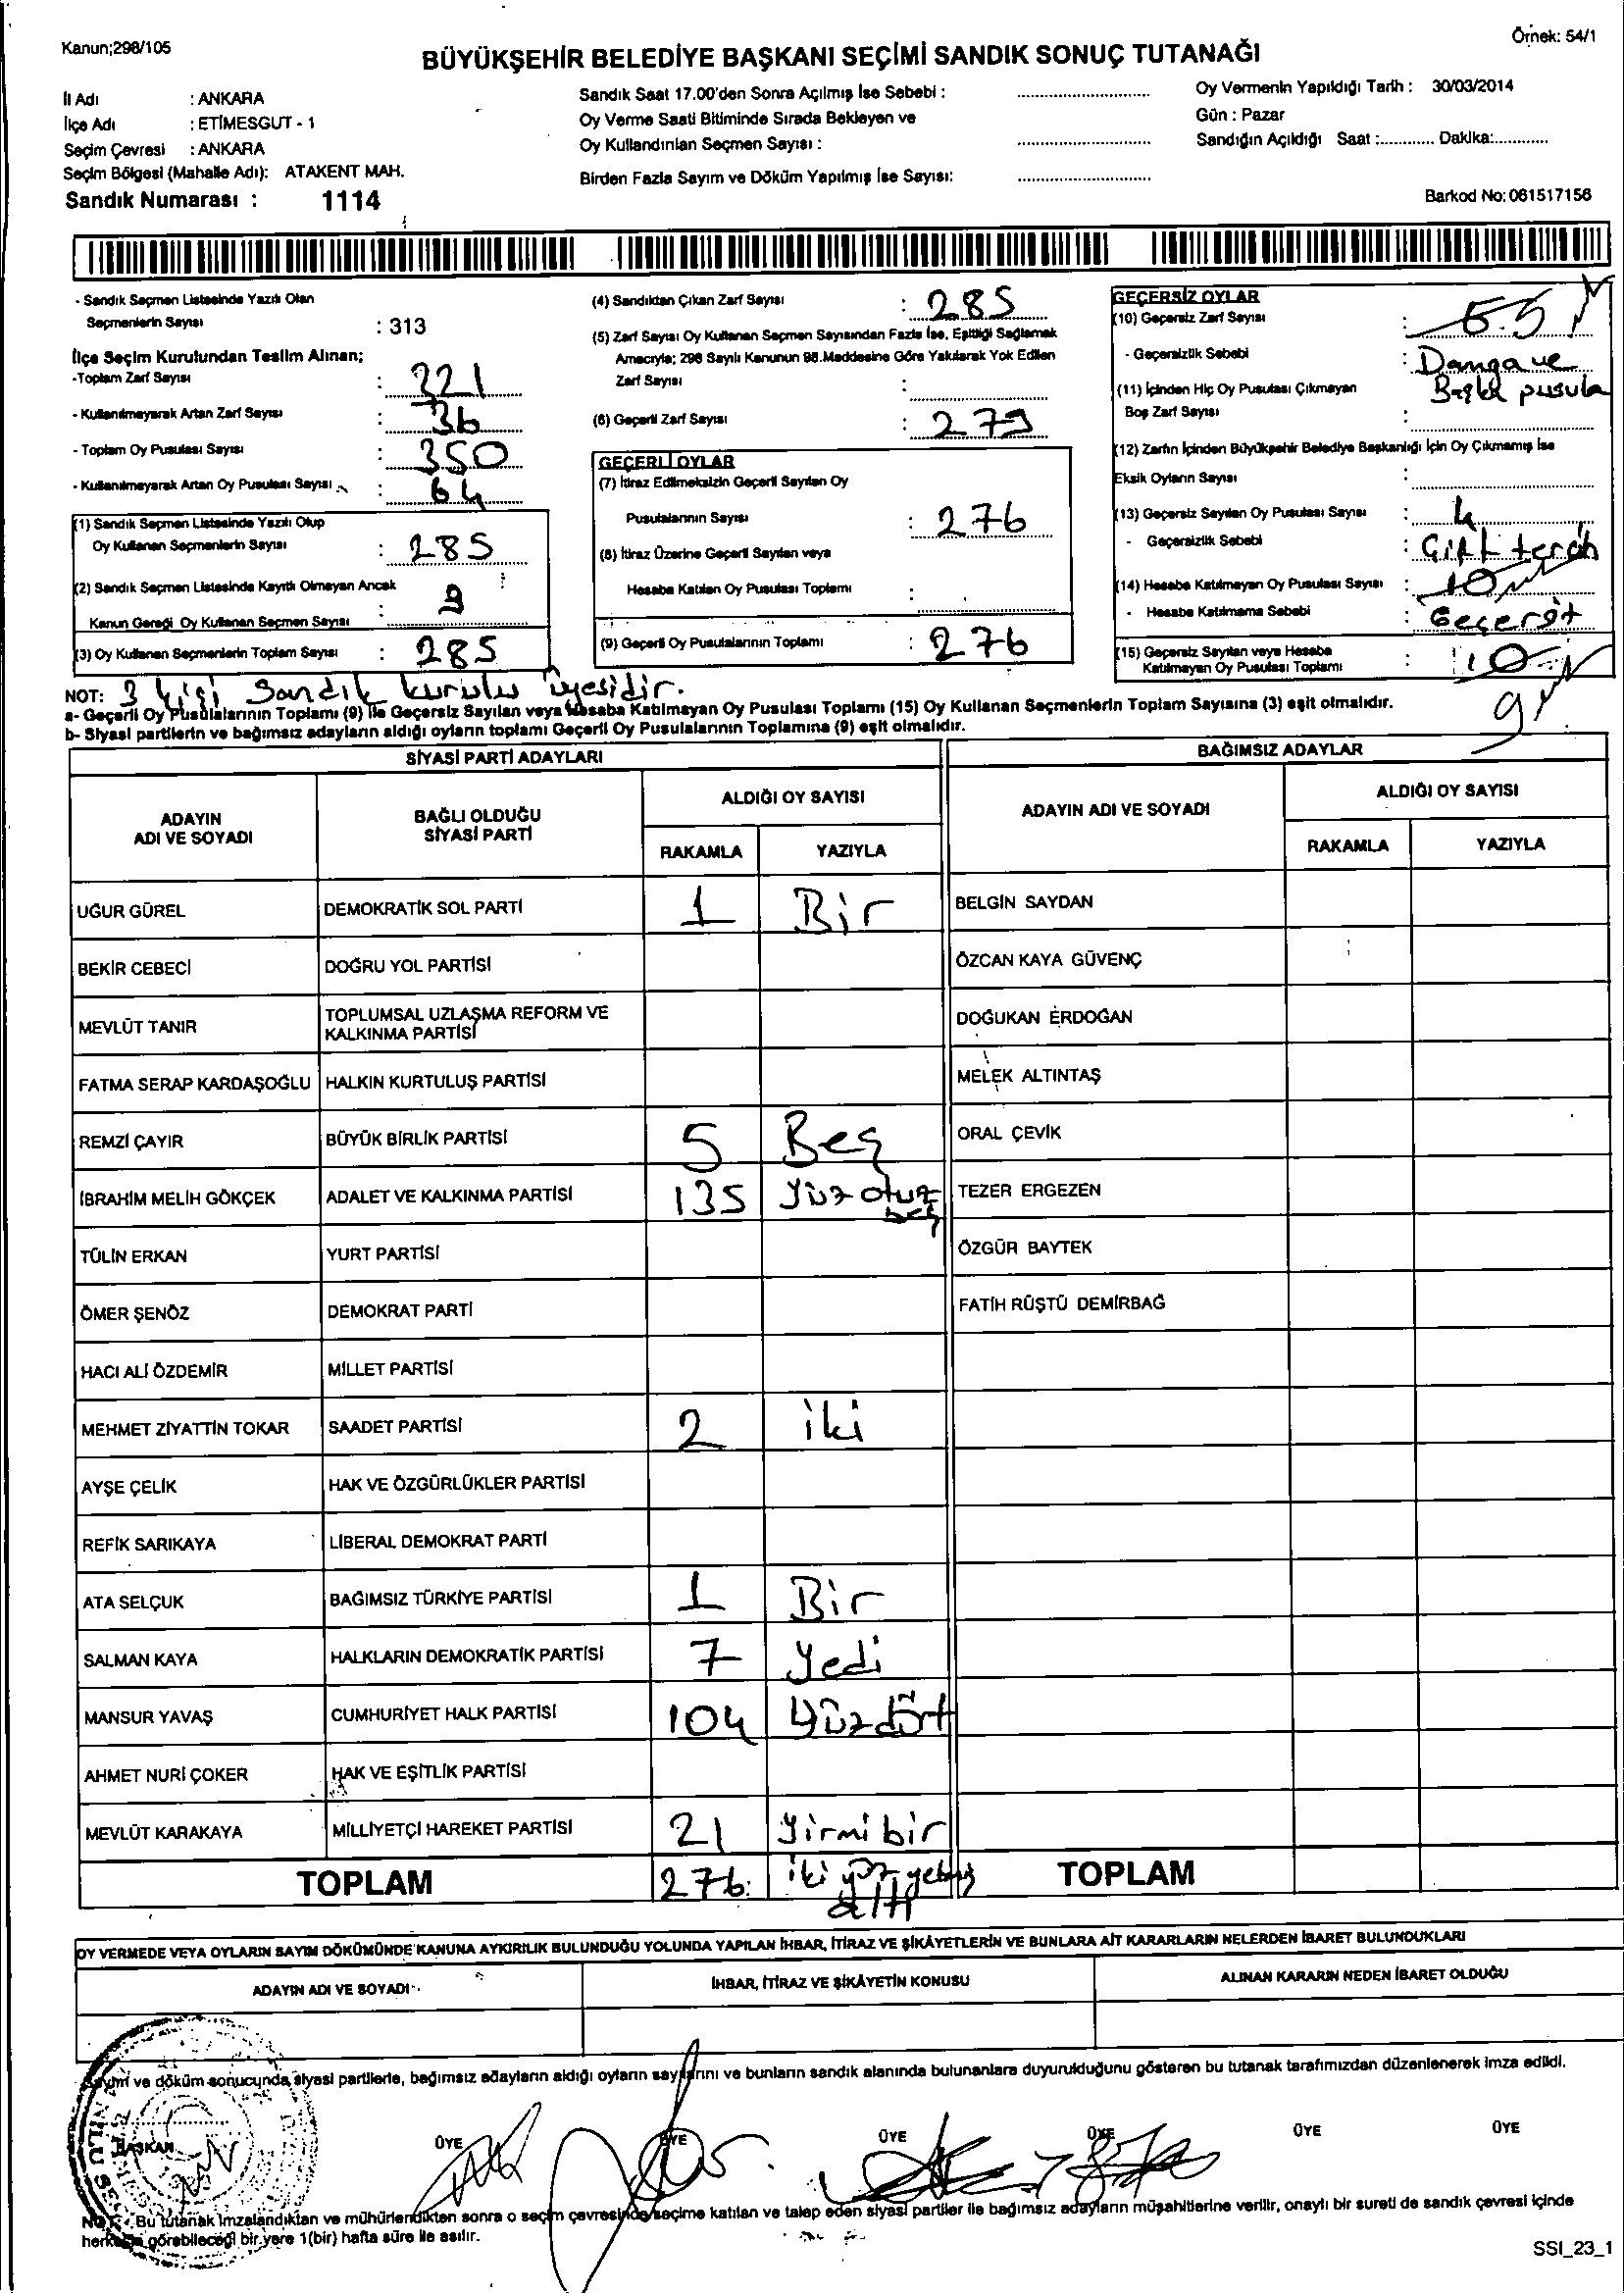 Kanun;298/105
Örnek: 54/1
BÜYÜKŞEHİR BELEDİYE BAŞKANI SEÇİMİ SANDIK SONUÇ TUTANAĞI
İl Adı : ANKARA
İlçe Adı : ETİMESGUT - 1
Seçim Çevresi : ANKARA
Seçim Bölgesi (Mahalle Adı): ATAKENT MAH.
Sandık Numarası : 1114
Sandık Saat 17.00'den Sonra Açılmış İse Sebebi :
Oy Verme Saati Bitiminde Sırada Bekleyen ve
Oy Kullandırılan Seçmen Sayısı :
Birden Fazla Sayım ve Döküm Yapılmış İse Sayısı:
Oy Vermenin Yapıldığı Tarih : 30/03/2014
Gün : Pazar
Sandığın Açıldığı Saat :............ Dakika:............
Barkod No: 061517156
- Sandık Seçmen Listesinde Yazılı Olan
Seçmenlerin Sayısı : 313
İlçe Seçim Kurulundan Teslim Alınan;
-Toplam Zarf Sayısı : 321
- Kullanılmayarak Artan Zarf Sayısı : 36
- Toplam Oy Pusulası Sayısı : 350
- Kullanılmayarak Artan Oy Pusulası Sayısı : 64
(1) Sandık Seçmen Listesinde Yazılı Olup
Oy Kullanan Seçmenlerin Sayısı : 285
(2) Sandık Seçmen Listesinde Kayıtlı Olmayan Ancak
Kanun Gereği Oy Kullanan Seçmen Sayısı :
(3) Oy Kullanan Seçmenlerin Toplam Sayısı : 285
(4) Sandıktan Çıkan Zarf Sayısı : 285
(5) Zarf Sayısı Oy Kullanan Seçmen Sayısından Fazla İse, Eşitliği Sağlamak
Amacıyla; 298 Sayılı Kanunun 98.Maddesine Göre Yakılarak Yok Edilen
Zarf Sayısı :
(6) Geçerli Zarf Sayısı : 279
GEÇERLİ OYLAR
(7) İtiraz Edilmeksizin Geçerli Sayılan Oy
Pusulalarının Sayısı : 276
(8) İtiraz Üzerine Geçerli Sayılan veya
Hesaba Katılan Oy Pusulası Toplamı :
(9) Geçerli Oy Pusulalarının Toplamı : 276
GEÇERSİZ OYLAR
(10) Geçersiz Zarf Sayısı :
- Geçersizlik Sebebi : Damga ve
Başka pusula
(11) İçinden Hiç Oy Pusulası Çıkmayan
Boş Zarf Sayısı :
(12) Zarfın İçinden Büyükşehir Belediye Başkanlığı İçin Oy Çıkmamış İse
Eksik Oyların Sayısı :
(13) Geçersiz Sayılan Oy Pusulası Sayısı : 4
- Geçersizlik Sebebi : Çift tercih
(14) Hesaba Katılmayan Oy Pusulası Sayısı : 10
- Hesaba Katılmama Sebebi : Geçersiz
(15) Geçersiz Sayılan veya Hesaba
Katılmayan Oy Pusulası Toplamı : 10
9
NOT: 3 kişi Sandık kurulu üyesidir.
a- Geçerli Oy Pusulalarının Toplamı (9) ile Geçersiz Sayılan veya Hesaba Katılmayan Oy Pusulası Toplamı (15) Oy Kullanan Seçmenlerin Toplam Sayısına (3) eşit olmalıdır.
b- Siyasi partilerin ve bağımsız adayların aldığı oyların toplamı Geçerli Oy Pusulalarının Toplamına (9) eşit olmalıdır.
SİYASİ PARTİ ADAYLARI
BAĞIMSIZ ADAYLAR
ADAYIN ADI VE SOYADI
BAĞLI OLDUĞU SİYASİ PARTİ
ALDIĞI OY SAYISI
RAKAMLA YAZIYLA
ADAYIN ADI VE SOYADI
ALDIĞI OY SAYISI
RAKAMLA YAZIYLA
UĞUR GÜREL DEMOKRATİK SOL PARTİ 1 Bir BELGİN SAYDAN
BEKİR CEBECİ DOĞRU YOL PARTİSİ ÖZCAN KAYA GÜVENÇ
MEVLÜT TANIR TOPLUMSAL UZLAŞMA REFORM VE KALKINMA PARTİSİ DOĞUKAN ERDOĞAN
FATMA SERAP KARDAŞOĞLU HALKIN KURTULUŞ PARTİSİ MELEK ALTINTAŞ
REMZİ ÇAYIR BÜYÜK BİRLİK PARTİSİ 5 Beş ORAL ÇEVİK
İBRAHİM MELİH GÖKÇEK ADALET VE KALKINMA PARTİSİ 135 Yüz otuz beş TEZER ERGEZEN
TÜLİN ERKAN YURT PARTİSİ ÖZGÜR BAYTEK
ÖMER ŞENÖZ DEMOKRAT PARTİ FATİH RÜŞTÜ DEMİRBAĞ
HACI ALİ ÖZDEMİR MİLLET PARTİSİ
MEHMET ZİYATTİN TOKAR SAADET PARTİSİ 2 iki
AYŞE ÇELİK HAK VE ÖZGÜRLÜKLER PARTİSİ
REFİK SARIKAYA LİBERAL DEMOKRAT PARTİ
ATA SELÇUK BAĞIMSIZ TÜRKİYE PARTİSİ 1 Bir
SALMAN KAYA HALKLARIN DEMOKRATİK PARTİSİ 7 Yedi
MANSUR YAVAŞ CUMHURİYET HALK PARTİSİ 104 Yüz dört
AHMET NURİ ÇOKER HAK VE EŞİTLİK PARTİSİ
MEVLÜT KARAKAYA MİLLİYETÇİ HAREKET PARTİSİ 21 Yirmi bir
TOPLAM 276 iki yüz yetmiş altı TOPLAM
OY VERMEDE VEYA OYLARIN SAYIM DÖKÜMÜNDE KANUNA AYKIRILIK BULUNDUĞU YOLUNDA YAPILAN İHBAR, İTİRAZ VE ŞİKÂYETLERİN VE BUNLARA AİT KARARLARIN NELERDEN İBARET BULUNDUKLARI
ADAYIN ADI VE SOYADI İHBAR, İTİRAZ VE ŞİKÂYETİN KONUSU ALINAN KARARIN NEDEN İBARET OLDUĞU
Sayım ve döküm sonucunda siyasi partilerle, bağımsız adayların aldığı oyların sayılarını ve bunların sandık alanında bulunanlara duyurulduğunu gösteren bu tutanak tarafımızdan düzenlenerek imza edildi.
BAŞKAN ÜYE ÜYE ÜYE ÜYE ÜYE ÜYE
NOT: Bu tutanak imzalandıktan ve mühürlendikten sonra o seçim çevresinde seçime katılan ve talep eden siyasi partiler ile bağımsız adayların müşahitlerine verilir, onaylı bir sureti de sandık çevresi içinde
herkesin görebileceği bir yere 1(bir) hafta süre ile asılır.
SSI_23_1